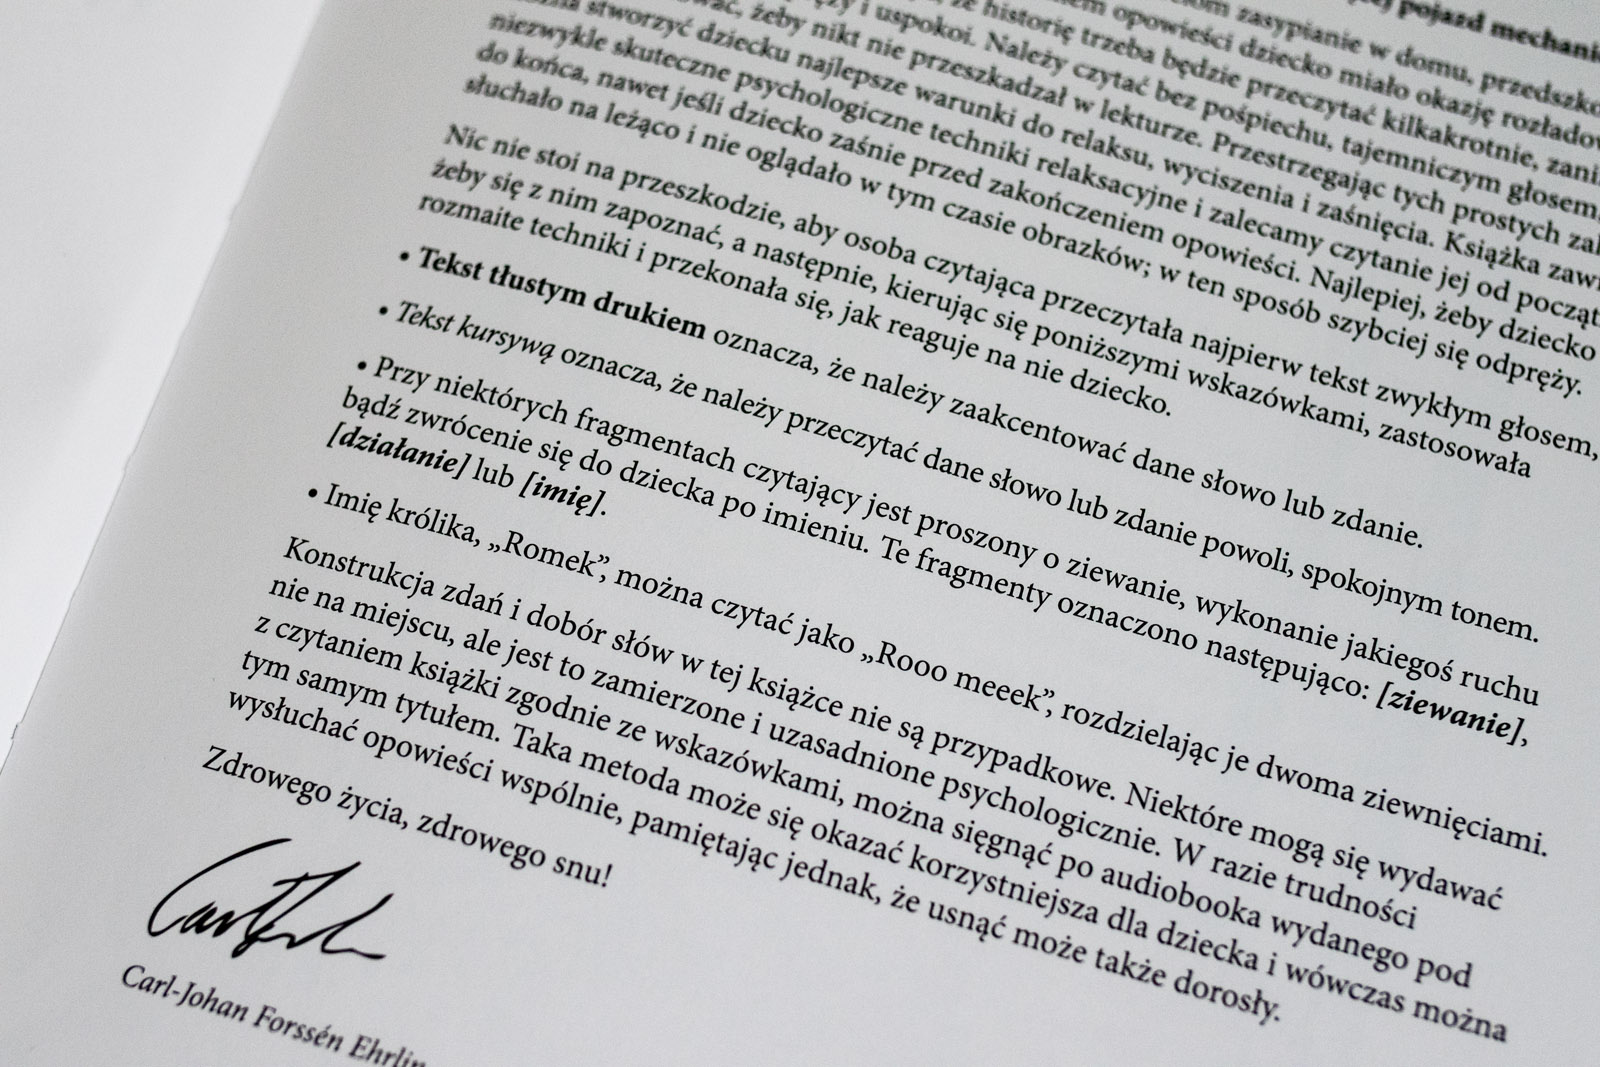 pojazd mechanic
zasypianie w domu,
opowieści dziecko miało okazję
że historię trzeba będzie przeczytać kilkakrotnie,
i uspokoi. Należy czytać bez pośpiechu, tajemniczym głosem,
żeby nikt nie przeszkadzał w lekturze. Przestrzegając tych prostych
stworzyć dziecku najlepsze warunki do relaksu, wyciszenia i zaśnięcia. Książka
niezwykle skuteczne psychologiczne techniki relaksacyjne i zalecamy czytanie jej od począt
do końca, nawet jeśli dziecko zaśnie przed zakończeniem opowieści. Najlepiej, żeby dziecko
słuchało na leżąco i nie oglądało w tym czasie obrazków; w ten sposób szybciej się odpręży.
Nic nie stoi na przeszkodzie, aby osoba czytająca przeczytała najpierw tekst zwykłym głosem,
żeby się z nim zapoznać, a następnie, kierując się poniższymi wskazówkami, zastosowała
rozmaite techniki i przekonała się, jak reaguje na nie dziecko.
• Tekst tłustym drukiem oznacza, że należy zaakcentować dane słowo lub zdanie.
• Tekst kursywą oznacza, że należy przeczytać dane słowo lub zdanie powoli, spokojnym tonem.
• Przy niektórych fragmentach czytający jest proszony o ziewanie, wykonanie jakiegoś ruchu
bądź zwrócenie się do dziecka po imieniu. Te fragmenty oznaczono następująco: [ziewanie],
[działanie] lub [imię].
• Imię królika, „Romek”, można czytać jako „Rooo meeek”, rozdzielając je dwoma ziewnięciami.
Konstrukcja zdań i dobór słów w tej książce nie są przypadkowe. Niektóre mogą się wydawać
nie na miejscu, ale jest to zamierzone i uzasadnione psychologicznie. W razie trudności
z czytaniem książki zgodnie ze wskazówkami, można sięgnąć po audiobooka wydanego pod
tym samym tytułem. Taka metoda może się okazać korzystniejsza dla dziecka i wówczas można
wysłuchać opowieści wspólnie, pamiętając jednak, że usnąć może także dorosły.
Zdrowego życia, zdrowego snu!
Carl-Johan Forssén Ehrlin